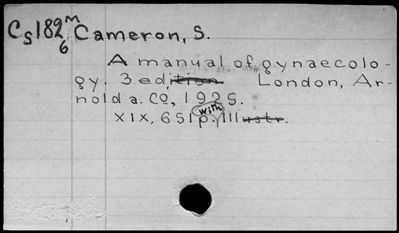 Cs182m Cameron, S.
6
A manual of gynaecolo-
gy. 3 edition London, Ar-
nold a. Co, 1925.
XIX, 651 p. with Illustr.